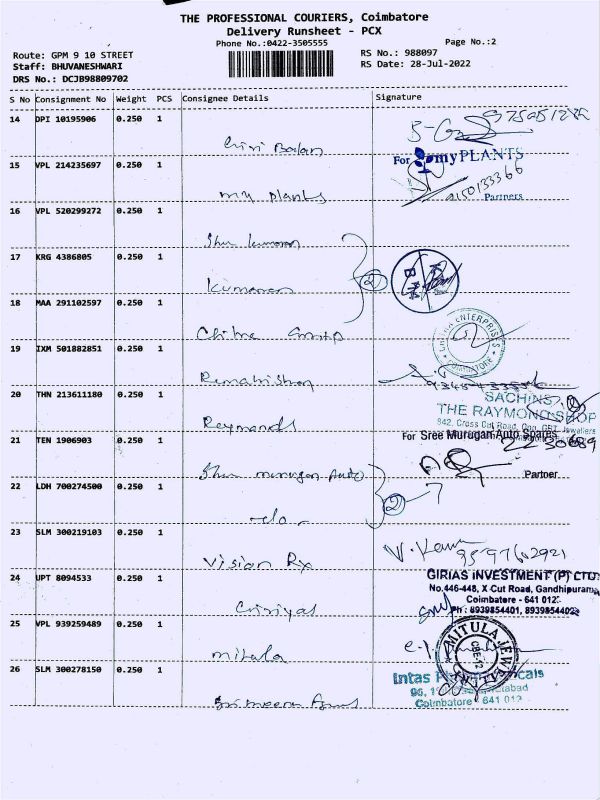 THE PROFESSIONAL COURIERS, Coimbatore
Delivery Runsheet - PCX
Phone No.:0422-3505555
Page No.:2
Route: GPM 9 10 STREET
RS No.: 988097
Staff: BHUVANESHWARI
RS Date: 28-Jul-2022
DRS No.: DCJB98809702
S No Consignment No Weight PCS Consignee Details Signature
14 DPI 10195906 0.250 1
15 VPL 214235697 0.250 1
For myPLANTS
my plants
Partners
16 VPL 520299272 0.250 1
17 KRG 4386805 0.250 1
Kumaran
2
18 MAA 291102597 0.250 1
ENTERPRISES
COIMBATORE
19 IXM 501882851 0.250 1
20 THN 213611180 0.250 1
SACHINS
THE RAYMOND SHOP
842, Cross Cut Road, Opp. GRT Jewellers
Raymonds
21 TEN 1906903 0.250 1
For Sree Murugan Auto Spares
Shree murugan Auto
Partner
22 LDH 700274500 0.250 1
2
-do-
23 SLM 300219103 0.250 1
Vision Rx
24 UPT 8094533 0.250 1
GIRIAS INVESTMENT (P) LTD
No.446-448, X-Cut Road, Gandhipuram
Coimbatore - 641 012
Ph : 8939854401, 8939854402
Giriyas
25 VPL 939259489 0.250 1
MITULA JEWELL
CBE-12
mitula
26 SLM 300278150 0.250 1
Intas
Coimbatore - 641 012